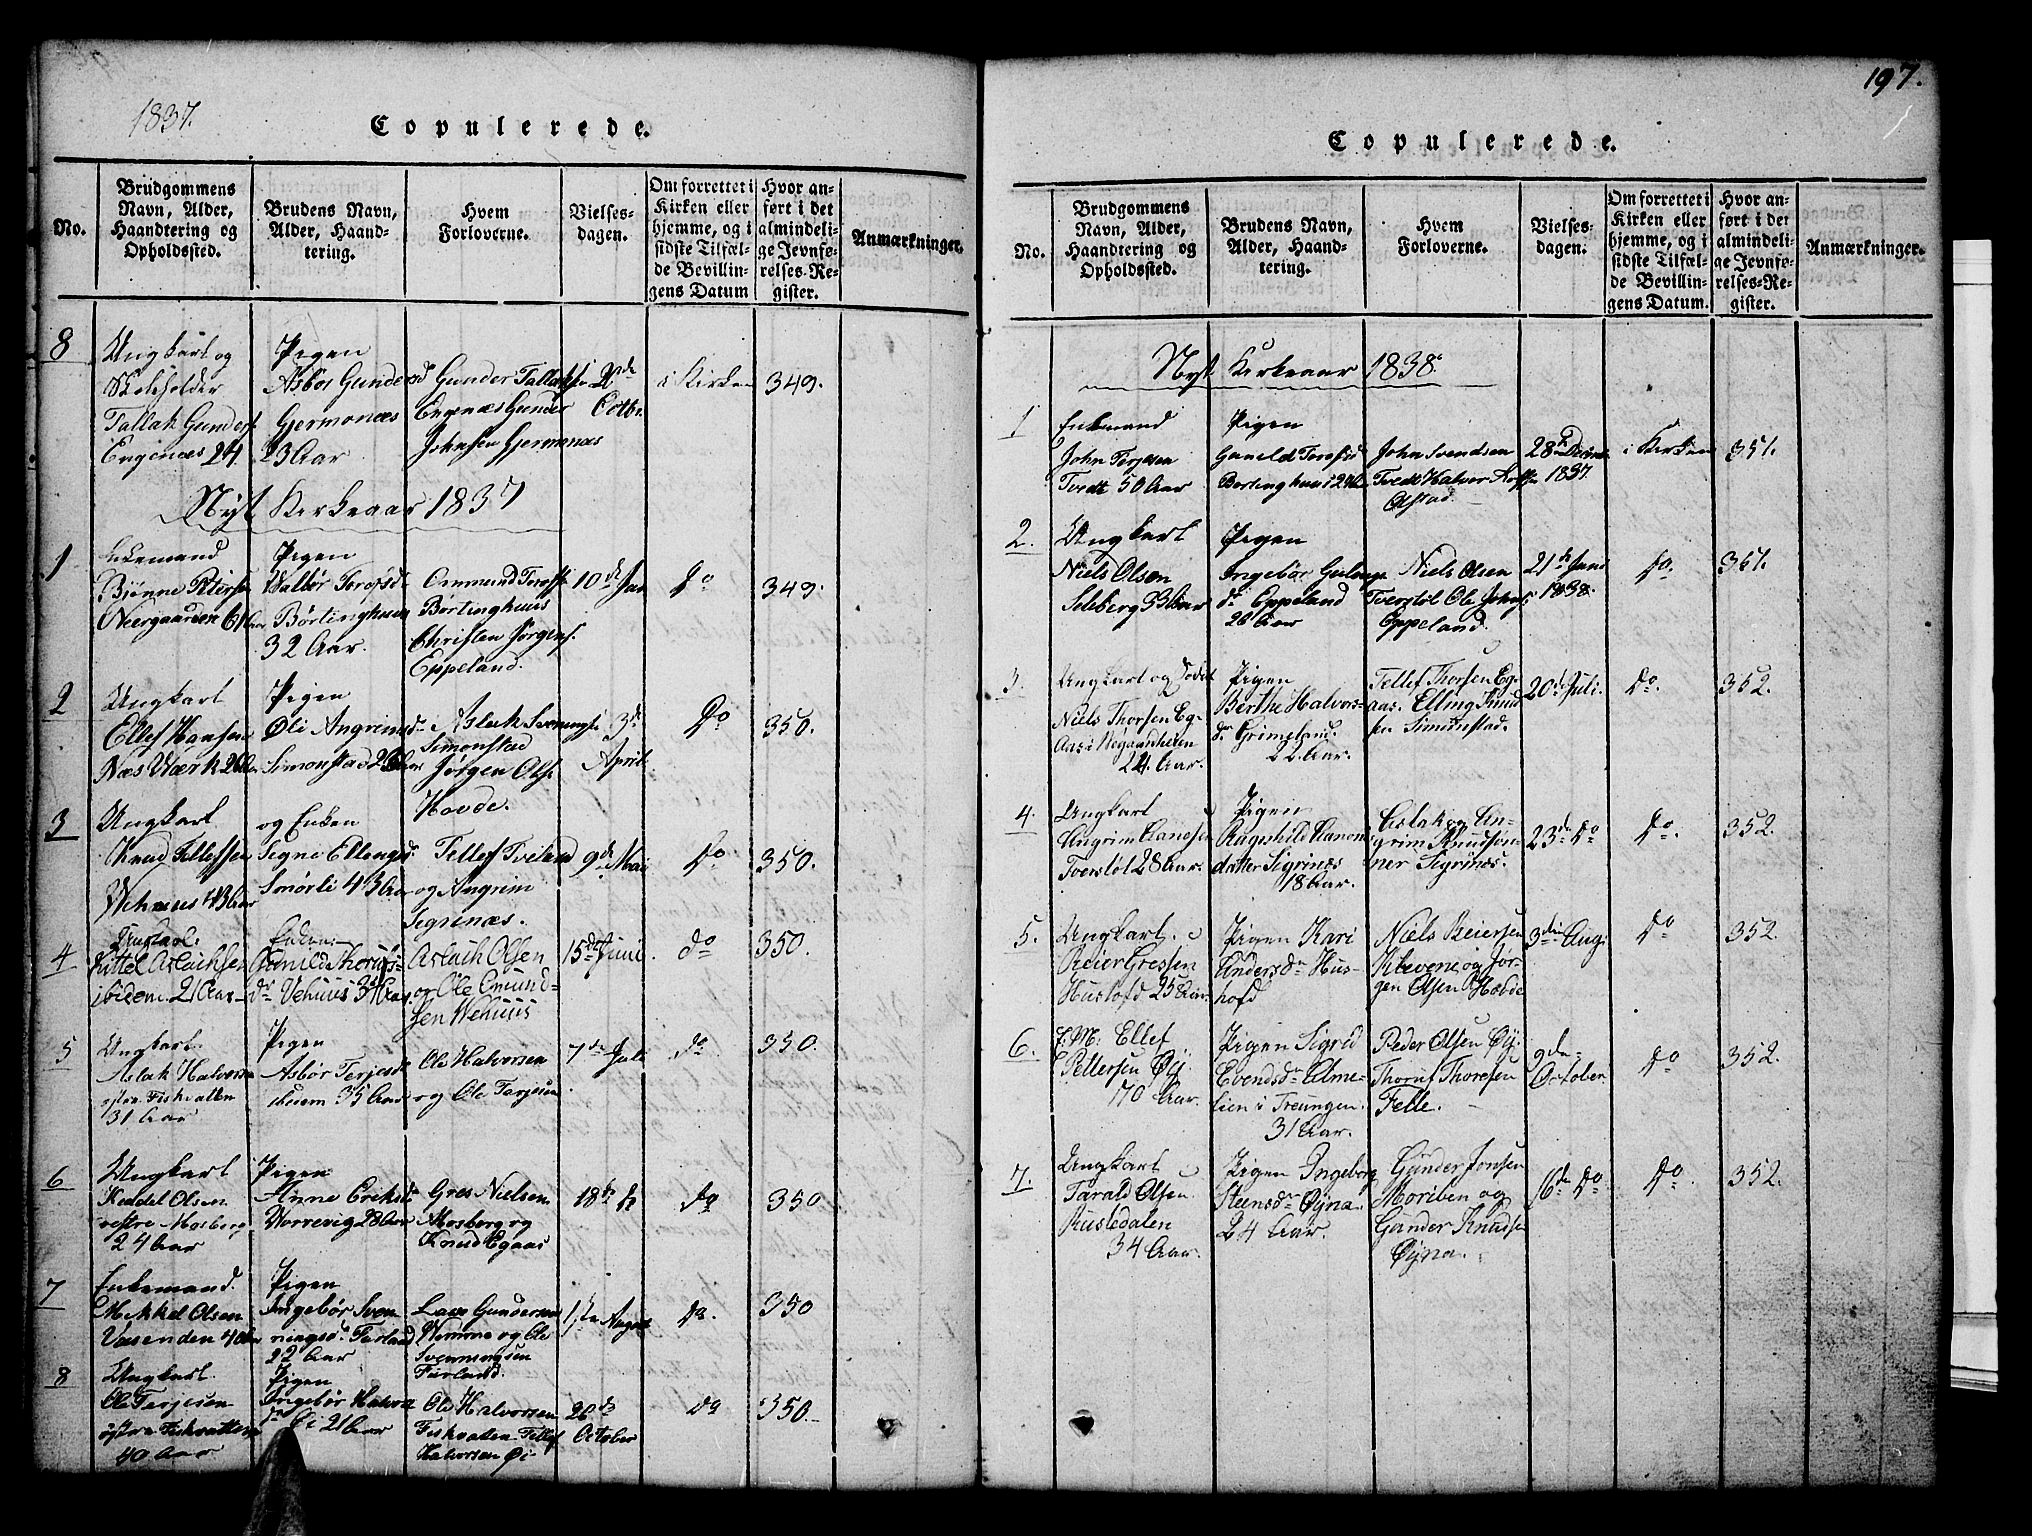 1837.
Copulerede.
No.
Brudgommens
Navn, Alder,
Haandtering og
Opholdssted.
Brudens Navn,
Alder, Haand-
tering.
Hvem
Forloverne.
Vielses-
dagen.
Om forrettet i
Kirken eller
hjemme, og i
sidste Tilfæl-
de Bevillin-
gens Datum
Hvor an-
ført i det
almindeli-
ge Jevnfø-
relses-Re-
gister.
Anmærkninger.
8
Ungkarl og
Skoleholder
Tallak Gunders
Enginæs 24
Pigen
Asbør Gundersd
Gjermonæs
23 Aar
Gunder Tallaks
Enginæs Gunder
Johnsen Gjermonæs
2de
Octbr.
i Kirken
349.
Nyt Kirkeaar 1837
1
Enkemand
Bjønne Peters
Neergaarden 61 Aar
Pigen
Valbør Torøfsd
Børtinghuus
32 Aar.
Ommund Torøfs
Børtinghuus
Christen Jørgens.
Eppeland.
10de Jan
Do
349.
2
Ungkarl
Ellef Hansen
Næs Værk 26 Aar
Pigen
Øli Angrimsd
Simonstad 26 Aar
Aslak Svenungs
Simonstad
Jørgen Ols.
Hovde.
3de
April
Do
350.
3
Ungkarl
Knud Tellefsen
Vehuus 43 Aar
og Enken
Segne Ellingsd.
Smørli 43 Aar
Tellef Tveland
og Angrim
Segrenæs.
9de Mai
Do
350.
4
Ungkarl:
Kittel Aslachsen
ibidem 21 Aar
Enken:
Gunild Thorøs-
dr Vehuus 31 Aar
Aslach Olsen
og Ole Emund-
sen Wehuus
15de Juni
do
350.
5
Ungkarl
Aslak Halvorsen
østre Fiskvatten
31 Aar
Pigen
Asbør Terjesdr
ibidem 35 Aar
Ole Halvorsen
og Ole Terjesen
7de Juli
do
350.
6
Ungkarl
Keddel Olsen
vestre Mosberg
24 Aar
Pigen
Anne Eriksd
Vorrevig 28 Aar
Gres Nielsen
Mosberg og
Knud Egaas
18de
do
350
7
Enkemand.
Mikkel Olsen
Vasenden 40 Aar
Pigen
Ingebør Sven
ningsd. Førland
22 Aar
Lavs Gundersen
Wimme og Ole
Svenningsen
Førland.
1ste August
do.
350
8
Ungkarl.
Ole Terjesen
østre Fiskvatten
40 Aar
Pigen
Ingebør Halvor
dr Øi 21 Aar
Ole Halvorsen
Fiskvatten Tellef
Halvorsen Øi
26de
October
do
350.
197.
Copulerede.
No.
Brudgommens
Navn, Alder,
Haandtering og
Opholdssted.
Brudens Navn,
Alder, Haand-
tering.
Hvem
Forloverne.
Vielses-
dagen.
Om forrettet i
Kirken eller
hjemme, og i
sidste Tilfæl-
de Bevillin-
gens Datum.
Hvor an-
ført i det
almindeli-
ge Jevnfø-
relses-Re-
gister.
Anmærkninger.
Nyt Kirkeaar 1838.
1
Enkemand
John Terjesen
Tvedt 50 Aar
Pigen
Gunild Torøfsd
Børtinghuus
John Svendsen
Tvedt Halvor
Ølstad.
28de Decemb
1837.
i Kirken
351.
2.
Ungkarl
Niels Olsen
Selsberg 33 Aar
Pigen
Ingebør
dr Eppeland
26 Aar
Niels Olsen
Tverstøl Ole Johns
Eppeland.
21de Juni
1838.
Do.
361.
3.
Ungkarl og
Niels Thorsen Eg-
aas i
24 Aar.
Pigen
Berthe Halvors-
dr Grimeland.
22 Aar.
Tellef Thorsen Eg-
aas. Elling Knud
sen Simonstad.
20de Juli.
Do.
352.
4.
Ungkarl
Angrim Aanesen
Tverstøl 28 Aar.
Pigen
Ragnhild Aanons
datter Sigrinæs
18 Aar.
Aslak og An-
grim Knudsøn-
ner Sigrinæs.
23de Do
Do.
352.
5.
Ungkarl.
Reier Gresen
Huslofd 25 Aar
Pigen Kari
Andersdr Hus-
lofd
Niels Reiersen
Klevene og Jør-
gen Olsen Hovde
3die Aug.
Do
352.
6.
E.M: Ellef
Pettersen Øij
70 Aar.
Pigen Sigrid
Evendsdr Alme-
lien i Treungen.
31 Aar.
Peder Olsen Øij
Thoruf Thoresen
Felle.
9de
October
Do
352.
7.
Ungkarl
Tarald Olsen
Rustedalen
34 Aar.
Pigen Ingeborg
Steensdr Øyna
24 Aar.
Gunder Jonsen
Moriben og
Gunder Knuds
Øyna.
16de Do
Do.
352.